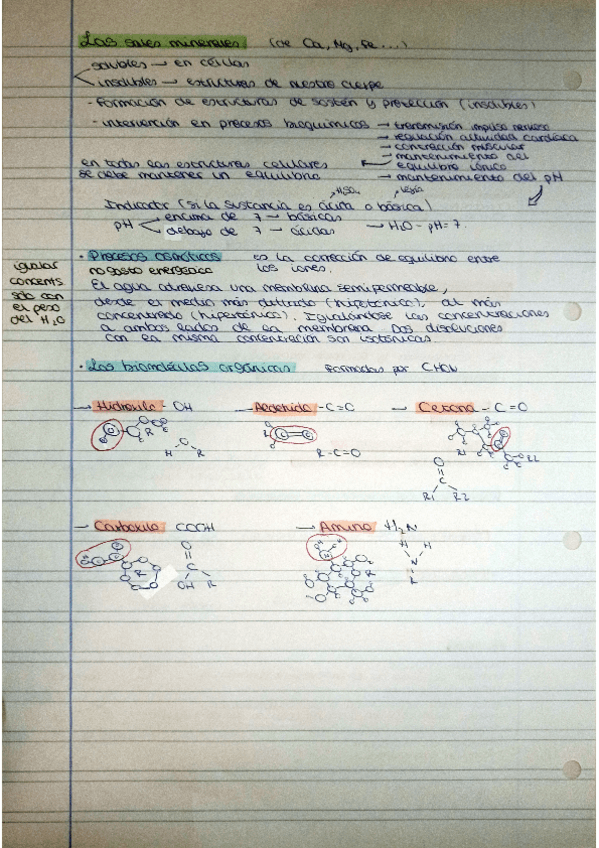 Las sales minerales (de Ca, Mg, Fe ...)
solubles → en células
insolubles → estructuras de nuestro cuerpo
- Formación de estructuras de sostén y protección (insolubles)
- intervención en procesos bioquímicos → transmisión impulso nervioso
→ regulación actividad cardíaca
→ contracción muscular
→ mantenimiento del equilibrio iónico
→ mantenimiento del pH
en todas las estructuras celulares
se debe mantener un equilibrio
H₂SO₄ lejía
Indicador (si la sustancia es ácida o básica)
pH encima de 7 → básicas
debajo de 7 → ácidas → H₂O - pH=7.
· Procesos osmóticos es la corrección de equilibrio entre
no gasto energético los iones.
igualar
concents
solo con
el peso
del H₂O
El agua atraviesa una membrana semipermeable,
desde el medio más diluido (hipotónico), al más
concentrado (hipertónico). Igualándose las concentraciones
a ambos lados de la membrana Dos disoluciones
con la misma concentración son isotónicas
· Las biomoléculas orgánicas formadas por CHON
→ Hidroxilo - OH → Aldehido - C=O → Cetona - C=O
R
H O R
C=O
R-C=O
R1 R2
O
C
R1 R2
→ Carboxilo COOH → Amino H₂N
R
O
C
OH R
R
H H
N
R